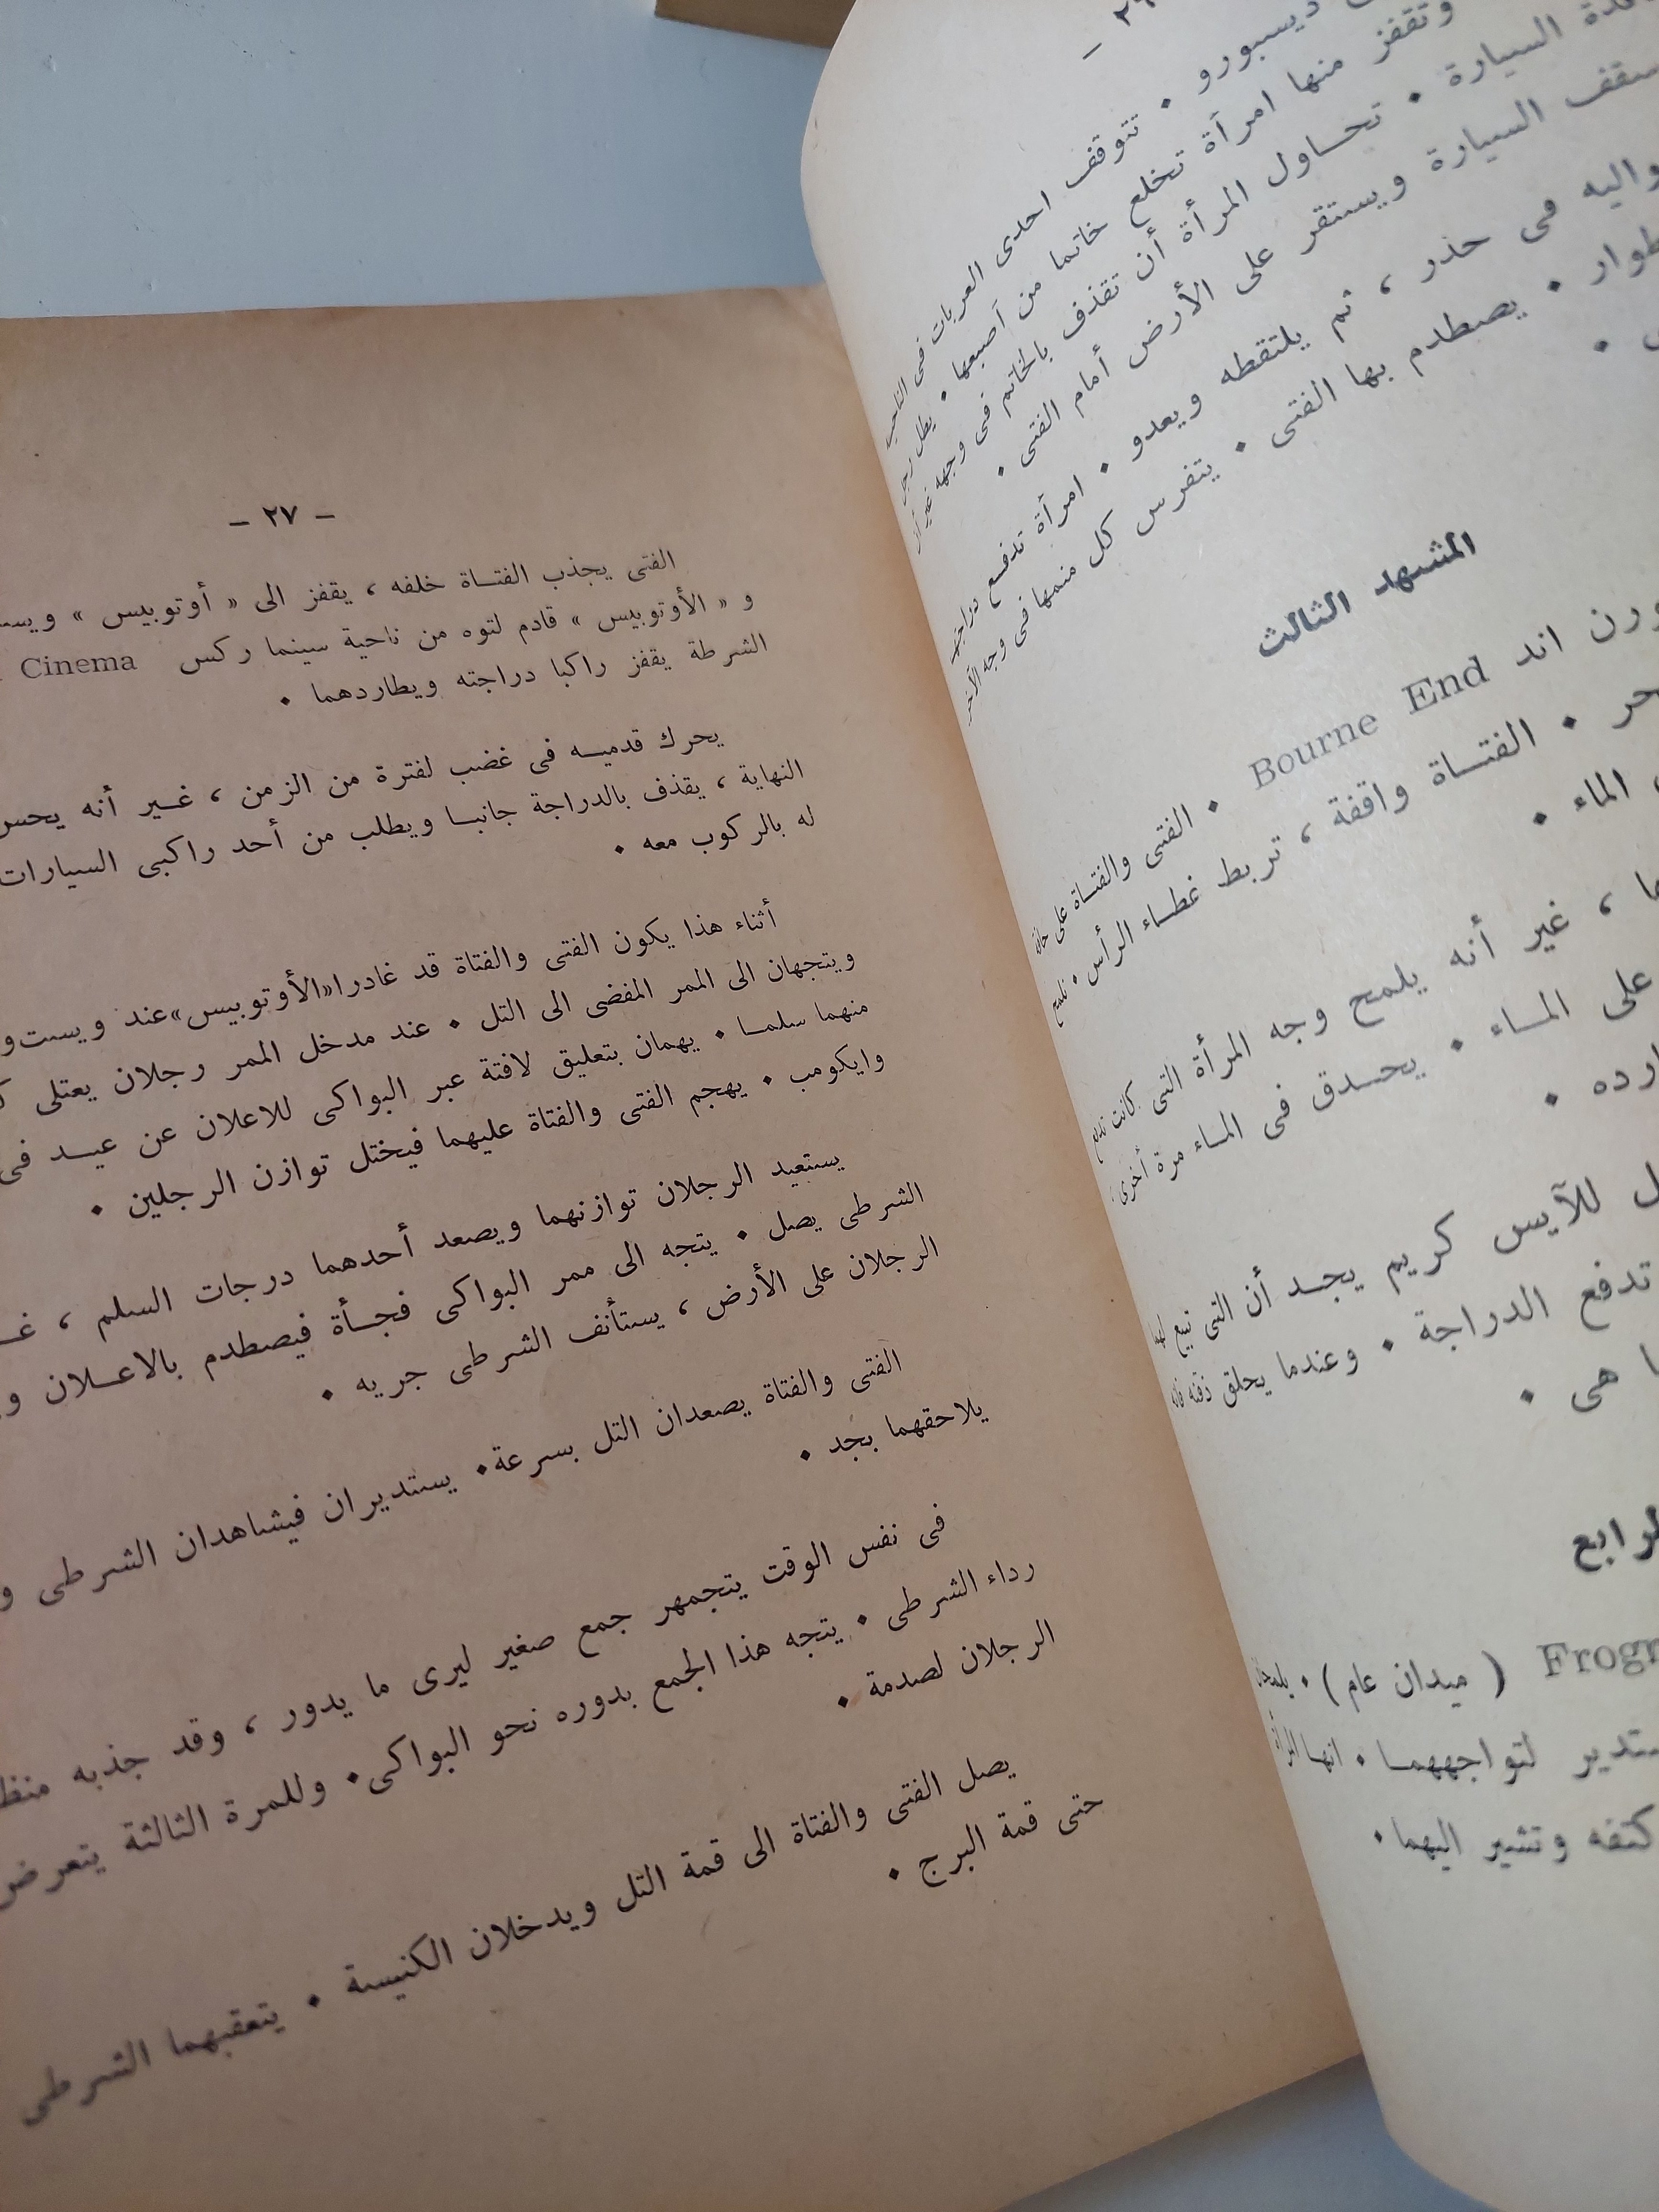 ديسبورو . تتوقف احدى العربات فى
وتقفز منها امرأة تخلع خاتما من أصبعها . يطل رجل
السيارة . تحساول المرأة أن تقذف بالخاتم فى وجهه غير أن
سقف السيارة ويستقر على الأرض أمام الفتى .
واليه فى حذر ، ثم يلتقطه ويعدو . امرأة تدفع دراجة
يصطدم بها الفتى . يتفرس كل منهما فى وجه الآخر
المشهد الثالث
اند Bourne End . الفتى والفتاة على
الفتاة واقفة ، تربط غطاء الرأس .
الماء .
، غير أنه يلمح وجه المرأة التى كانت
على الماء . يحدق فى الماء مرة أخرى
للآيس كريم يجد أن التى تبيع
تدفع الدراجة . وعندما يحلق ذقنه
هى .
( ميدان عام ) .
لتواجههما . انها
كتفه وتشير اليهما .
– ٢٧ –
الفتى يجذب الفتاة خلفه ، يقفز الى « أوتوبيس »
و « الأوتوبيس » قادم لتوه من ناحية سينما ركس Cinema
الشرطة يقفز راكبا دراجته ويطاردهما .
يحرك قدميه فى غضب لفترة من الزمن ، غير أنه يحس
النهاية ، يقذف بالدراجة جانبا ويطلب من أحد راكبى السيارات
له بالركوب معه .
أثناء هذا يكون الفتى والفتاة قد غادرا «الأوتوبيس» عند
ويتجهان الى الممر المفضى الى التل . عند مدخل الممر رجلان يعتلى
منهما سلما . يهمان بتعليق لافتة عبر البواكى للاعلان عن عيد فى
وايكومب . يهجم الفتى والفتاة عليهما فيختل توازن الرجلين .
يستعيد الرجلان توازنهما ويصعد أحدهما درجات السلم ،
الشرطى يصل . يتجه الى ممر البواكى فجأة فيصطدم بالاعلان
الرجلان على الأرض ، يستأنف الشرطى جريه .
الفتى والفتاة يصعدان التل بسرعة . يستديران فيشاهدان الشرطى
يلاحقهما بجد .
فى نفس الوقت يتجمهر جمع صغير ليرى ما يدور ، وقد جذبه
رداء الشرطى . يتجه هذا الجمع بدوره نحو البواكى . وللمرة الثالثة يتعرض
الرجلان لصدمة .
يصل الفتى والفتاة الى قمة التل ويدخلان الكنيسة . يتعقبهما الشرطى
حتى قمة البرج .